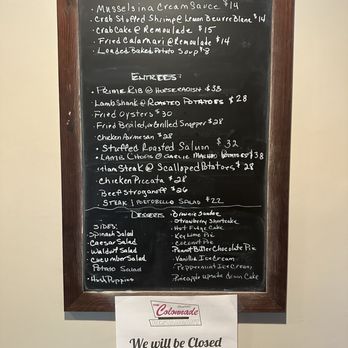 Mussels in a Cream Sauce $14
Crab Stuffed Shrimp @ Lemon Beurre Blanc $14
Crab Cake @ Remoulade $15
Fried Calamari @ Remoulade $14
Loaded Baked Potato Soup $8
Entrees:
Prime Rib @ Horseradish $38
Lamb Shank @ Roasted Potatoes $28
Fried Oysters $30
Fried Broiled, or Grilled Snapper $28
Chicken Parmesan $28
Stuffed Roasted Salmon $32
Lamb Chops @ Garlic Mashed Potatoes $38
Ham Steak @ Scalloped Potatoes $28
Chicken Piccata $28
Beef Stroganoff $26
Steak & Portobello Salad $22
Sides:
Spinach Salad
Caesar Salad
Waldorf Salad
Cucumber Salad
Potato Salad
Hush Puppies
Desserts
Brownie Sundae
Strawberry Shortcake
Hot Fudge Cake
Key Lime Pie
Coconut Pie
Peanut Butter Chocolate Pie
Vanilla Ice Cream
Peppermint Ice Cream
Pineapple upside down Cake
Colonnade
We will be Closed